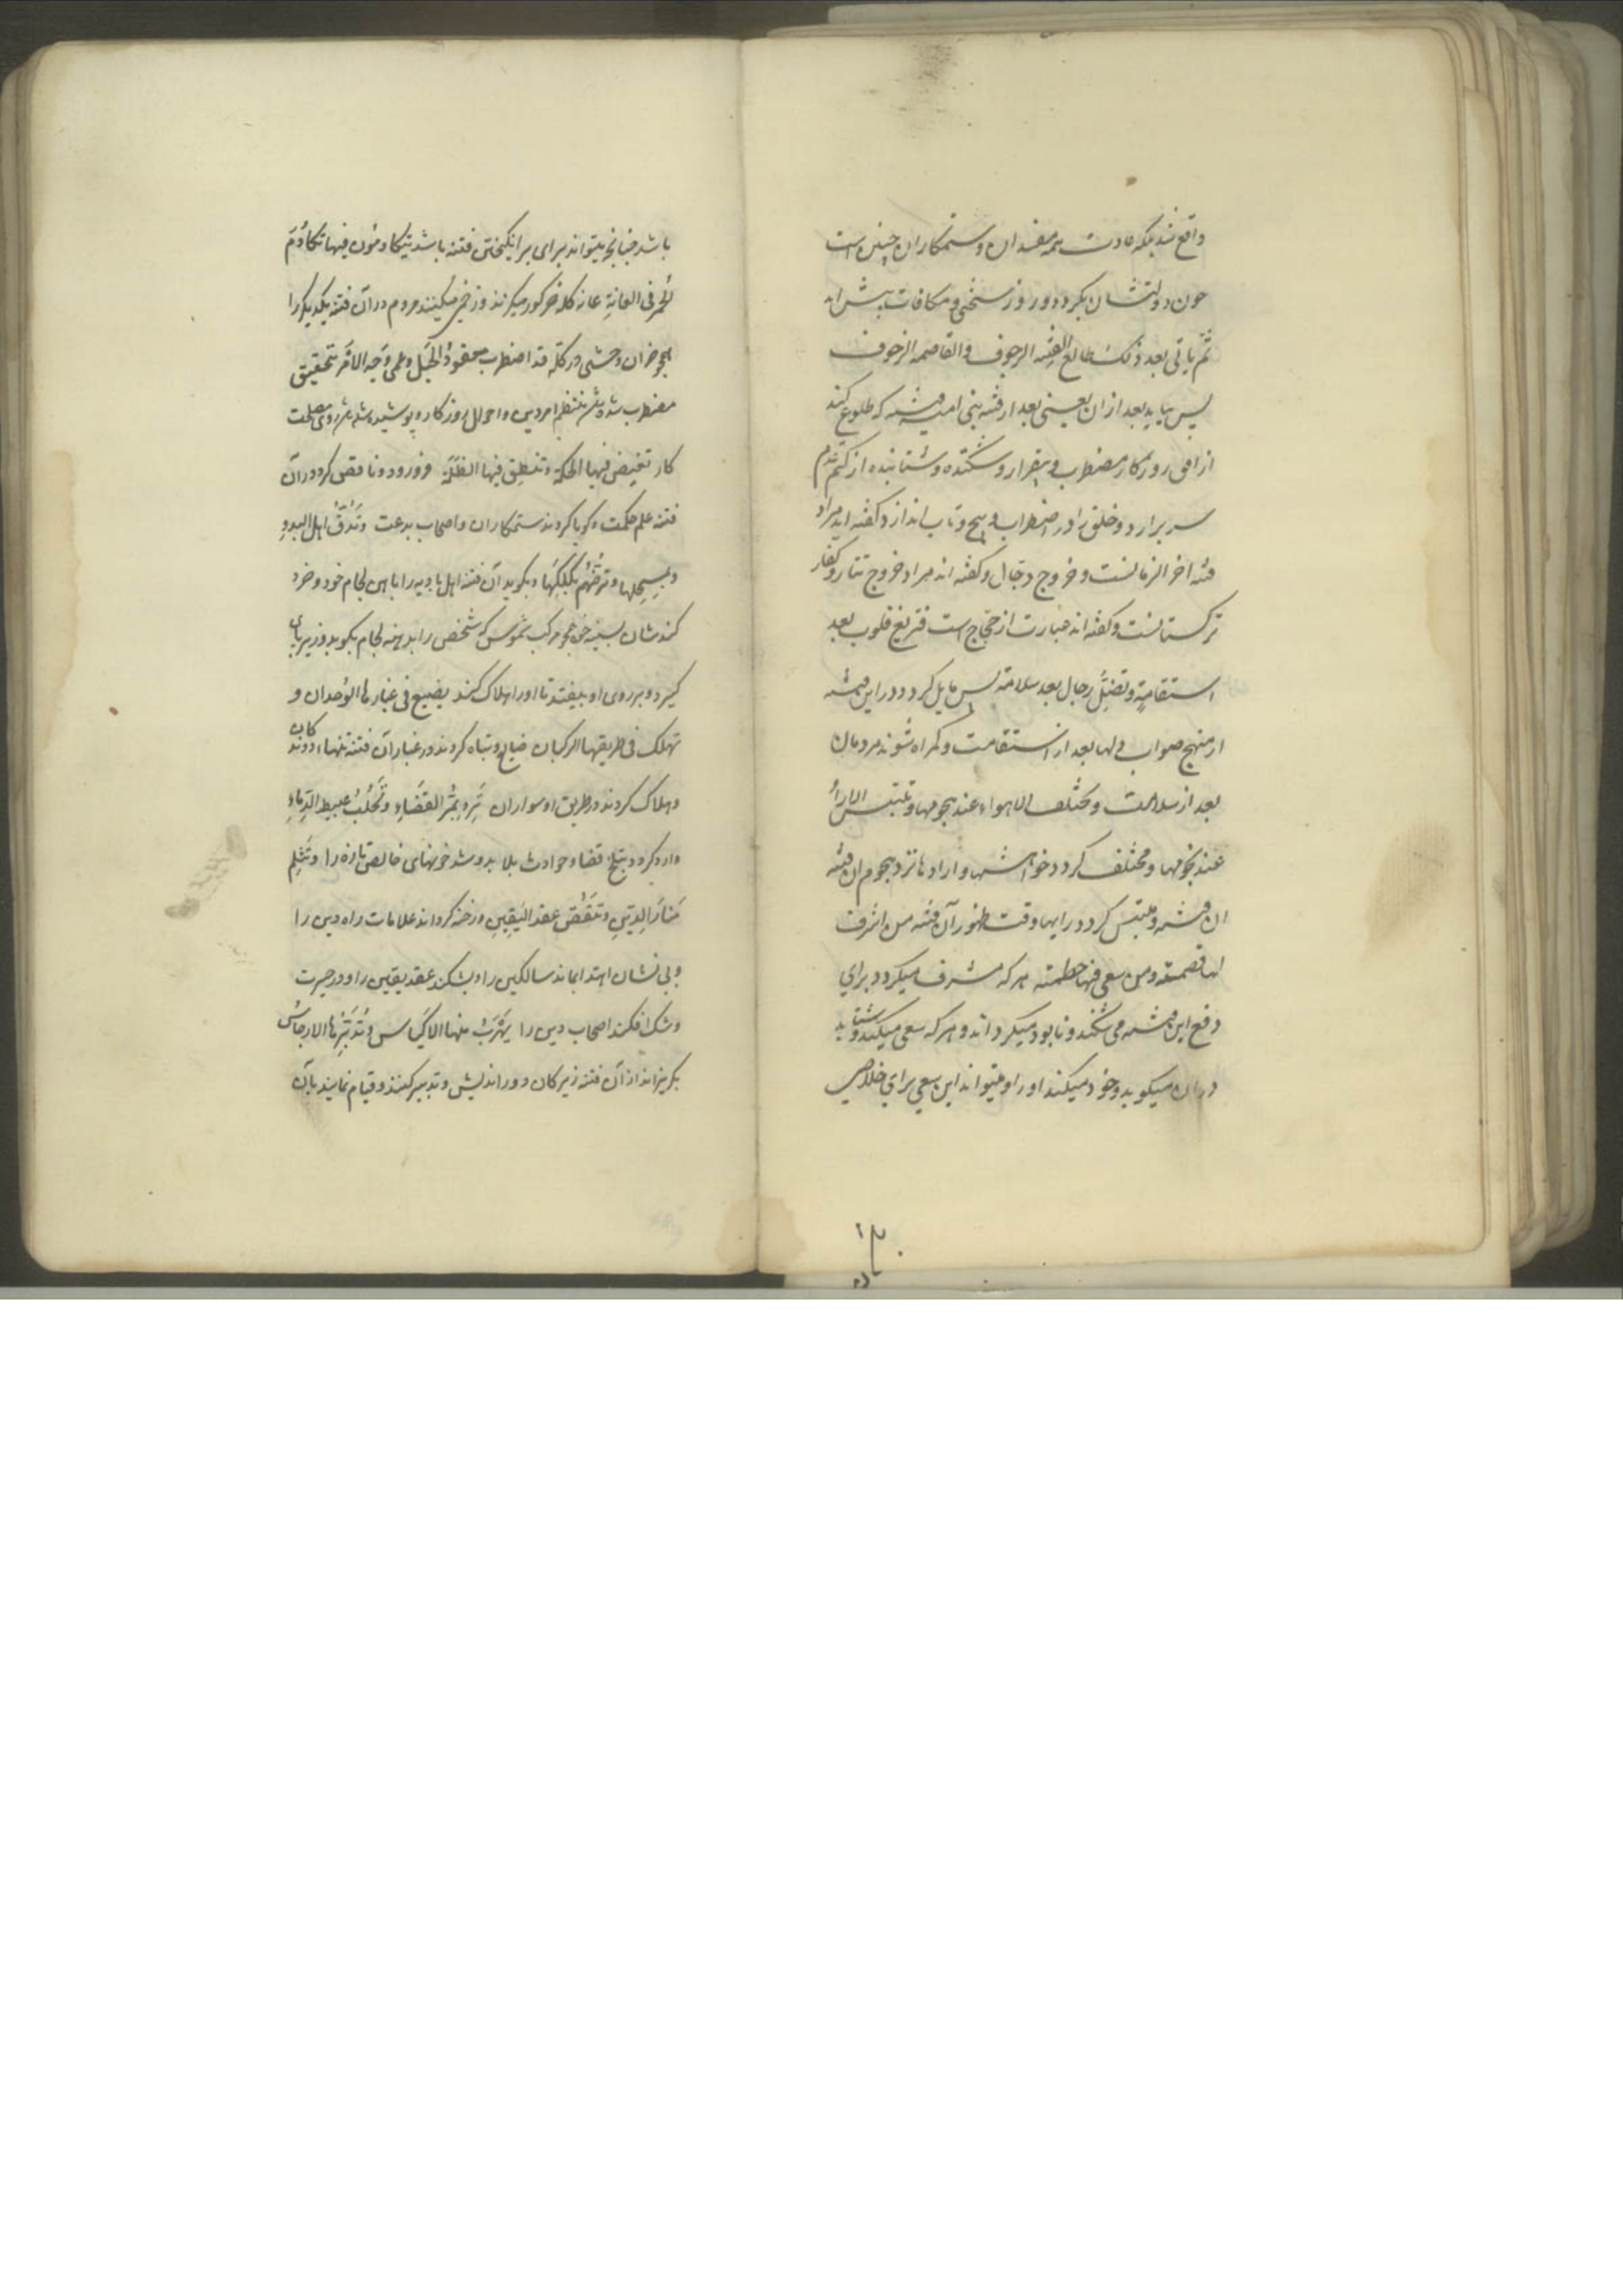 واقع شد بلکه عادت همه مفسدان و ستمکاران چنین است
چون دولتشان بگردد و روز سختی و مکافات پیش آید
ثم یأتی بعد ذلک طالع الفتنه الرجوف والقاصمه الزحوف
پس بیاید بعد از ان یعنی بعد از فتنه بنی امیه فتنه که طلوع کند
از افق روزکار مضطرب و بیقرار و شکننده و شتابنده از کتم عدم
سر برارد و خلق را در اضطراب و پیچ و تاب اندازد کفته اند مراد
فتنه اخر الزمانست و خروج دجال و کفته اند مراد خروج تتار و کفار
ترکستانست و کفته اند عبارت از حجاج است فتزیغ قلوب بعد
استقامةٍ وتضلّ رجال بعد سلامة پس مایل کردد در این فتنه
از منهج صواب دلها بعد از استقامت و کمراه شوند مردمان
بعد از سلامت و مختلف الاهواء عند هجومها و تلتبس الاراءُ
عند نجومها و مختلف کردد خواهشها و اراده ها نزد هجوم ان فتنه
ان فتنه و ملتبس کردد رایها وقت ظهور آن فتنه من اشرف
لها قصمته ومن سعی فیها حطمته هر که مشرف میکردد برای
دفع این فتنه می شکند و نابود میکرداند و هر که سعی میکند و شتابد
در ان میکوبد و خورد میکند او را و میتواند این سعی برای خلاصی
باشد چنانچه میتواند برای برانکیختن فتنه باشد یتکادمون فیها تکادُمَ
الحُمر فی العانةِ عانه کله خر کور میکزند و زخمی میکنند مردم در آن فتنه یکدیکر را
همچو خران وحشی در کله قد اضطرب معقودُ الحَبل وعمی وَجه الامر بتحقیق
مضطرب شد رشته منتظم امر دین و احوال روزکار و پوشیده شد روی مصلحت
کار تغیض فیها الحکمة وتنطِق فیها الظلمَة فرو رود و ناقص کردد در آن
فتنه علم حکمت و کویا کردند ستمکاران و اصحاب بدعت وتَدُقّ اهل البدوِ
بمِسحلها وترضّهُم بکَلکِلها و بکوبد آن فتنه اهل بادیه را باهن لجام خود و خرد
کندشان بسینه خود همچو مرکب شموس که شخص را بدهنه لجام بکوبد و زیر پای
کیرد و بر روی او بیفتد تا او را هلاک کند یضیع فی غبارها الوُحدان و
تهلک فی طریقها الرکبان ضایع و تباه کردند در غبار آن فتنه تنها روندکان
و هلاک کردند در طریق او سواران تَرِد بمُرّ القضَاءِ وتَحلُبُ عبیط الدّماءِ
وارد کردد بتلخ قضا و حوادث بلا بدوشد خونهای خالص تازه را وتَثلِم
مَنارَ الدینِ وتنقُضُ عقد الیَقِینِ و رخنه کرداند علامات راه دین را
و بی نشان اهتدا بماند سالکین را و بشکند عقد یقین را و در حیرت
و شک افکند اصحاب دین را یَهرَبُ منها الاکیاس وتُدَبّرها الارجاسُ
بکریزاند از آن فتنه زیرکان دور اندیش و تدبیر کنند و قیام نمایند بآن